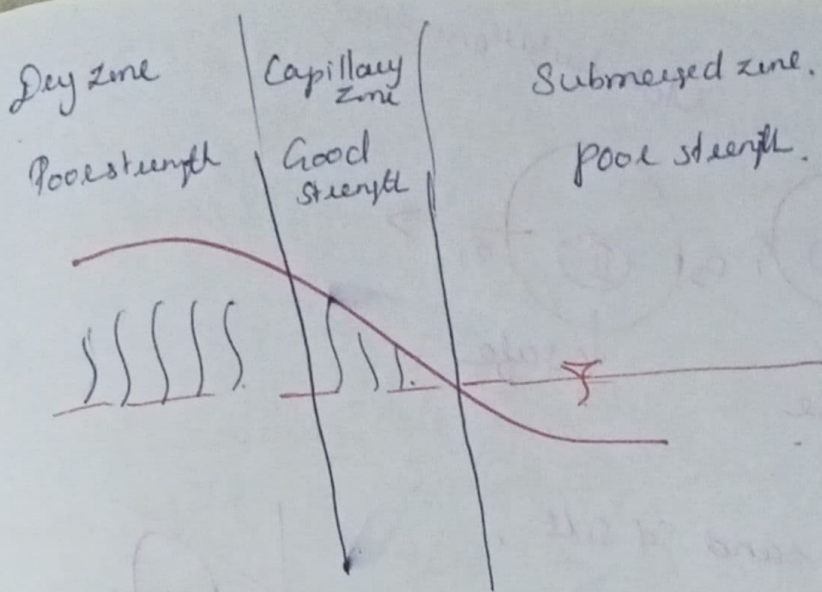 Dry zone
Poor strength
Capillary
zone
Good
strength
Submerged zone.
poor strength.